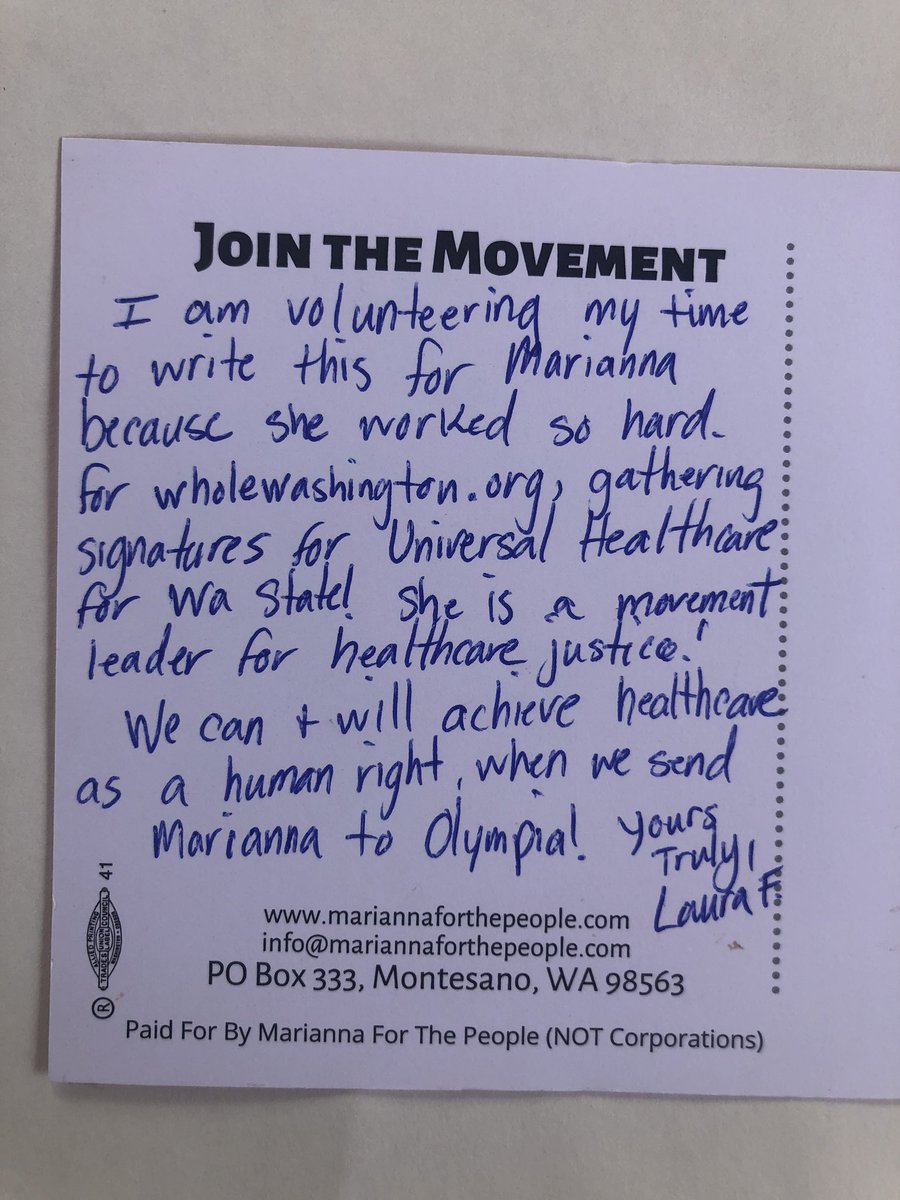 JOIN THE MOVEMENT
I am volunteering my time
to write this for Marianna
because she worked so hard.
for wholewashington.org, gathering
signatures for Universal Healthcare
for Wa State! She is a movement
leader for healthcare justice!
We can + will achieve healthcare
as a human right, when we send
Marianna to Olympia! Yours
Truly,
Laura F.
www.mariannaforthepeople.com
info@mariannaforthepeople.com
PO Box 333, Montesano, WA 98563
Paid For By Marianna For The People (NOT Corporations)
ALLIED PRINTING
TRADES UNION LABEL COUNCIL
41
R